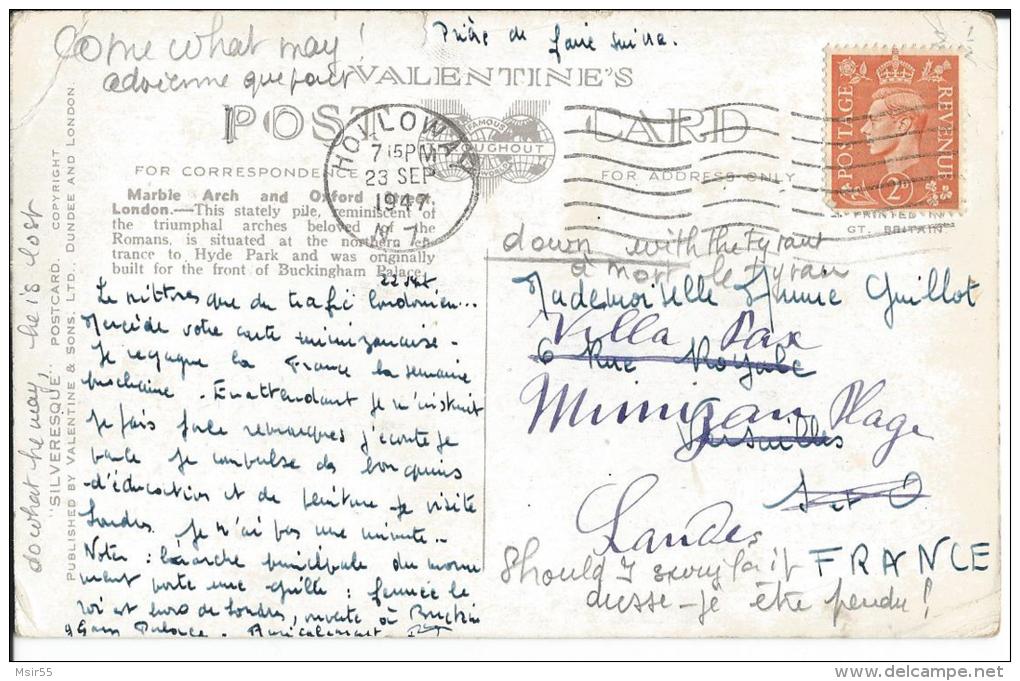 Come what may !
advienne que pourt
Prière de faire suivre.
VALENTINE'S
POST CARD
FAMOUS
THROUGHOUT
WORLD
HOLLOWAY
7 15 PM
23 SEP
1947
N. 7
POSTAGE REVENUE
2D
PRINTED IN
GT. BRITAIN
FOR CORRESPONDENCE
FOR ADDRESS ONLY
Marble Arch and Oxford
London.—This stately pile, reminiscent of
the triumphal arches beloved of the
Romans, is situated at the northern en-
trance to Hyde Park and was originally
built for the front of Buckingham Palace.
22 sept
que du trafic londonien...
Merci de votre carte mimizanaise.
Je regagne la France la semaine
prochaine. En attendant je m'instruit
je fais force remarques j'écoute je
parle je compulse des bouquins
d'éducation et de peinture je visite
Londres. Je n'ai pas une minute..
Noter : l'arche principale du monu
ment porte une grille : fermée le
roi est hors de Londres, ouverte à Buckin
gham Palace. Amicalement
do what he may, he is lost
"SILVERESQUE" POSTCARD. COPYRIGHT
PUBLISHED BY VALENTINE & SONS, LTD., DUNDEE AND LONDON.
down with the tyrant
à mort le tyran
Mademoiselle Anne Guillot
Villa Pax
6 Rue Royale
Mimizan Plage
Versailles
S et O
Landes
FRANCE
Should I sorry for it
dusse-je être pendu !
Msir55
delcampe.net